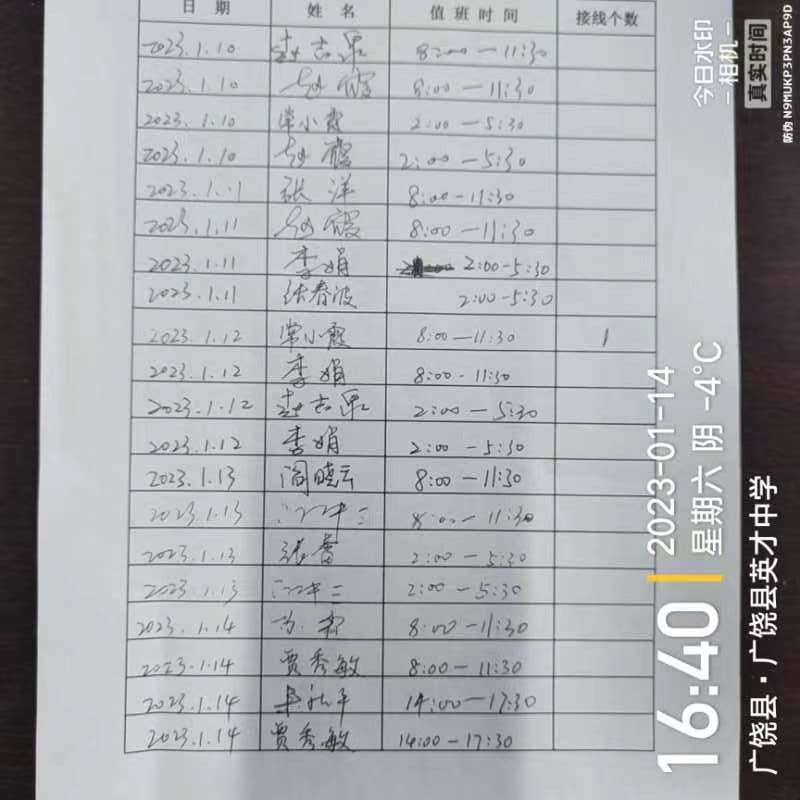 日 期 姓 名 值 班 时 间 接线个数
2023.1.10 8:00—11:30
2023.1.10 赵霞 8:00—11:30
2023.1.10 常小霞 2:00—5:30
2023.1.10 赵霞 2:00—5:30
2023.1.11 张洋 8:00—11:30
2023.1.11 赵霞 8:00—11:30
2023.1.11 李娟 2:00-5:30
2023.1.11 张春波 2:00-5:30
2023.1.12 常小霞 8:00—11:30 1
2023.1.12 李娟 8:00-11:30
2023.1.12 2:00—5:30
2023.1.12 李娟 2:00-5:30
2023.1.13 阎晓云 8:00—11:30
2023.1.13 8:00—11:30
2023.1.13 2:00—5:30
2023.1.13 2:00—5:30
2023.1.14 8:00—11:30
2023.1.14 贾秀敏 8:00—11:30
2023.1.14 14:00—17:30
2023.1.14 贾秀敏 14:00—17:30
16:40
2023-01-14
星期六 阴 -4℃
广饶县·广饶县英才中学
今日水印
-相机-
真实时间
防伪 N9MUKP3PN3AP9D